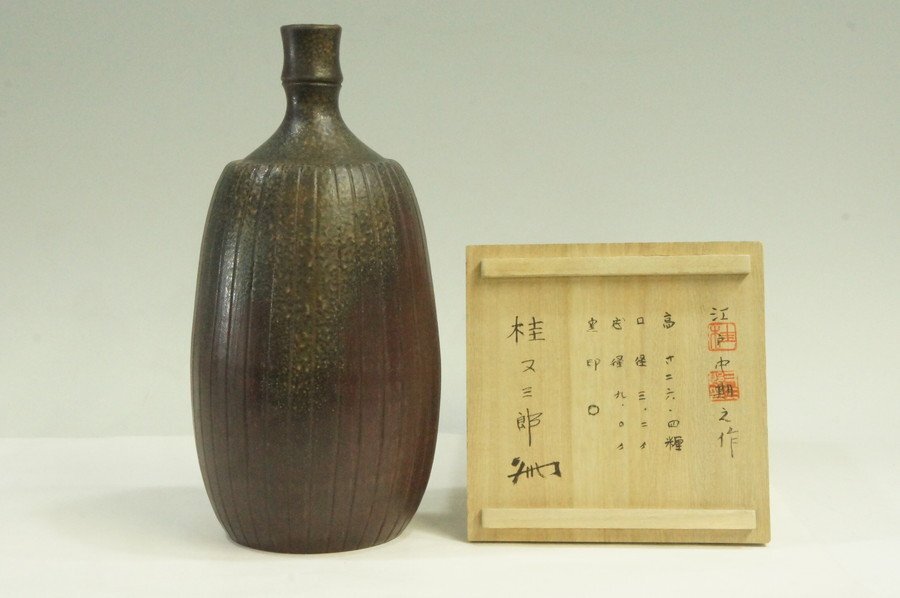 江戸中期之作
高 サ二六.四糎
口 径 三.二〃
底 径 九.〇〃
窯 印 〇
桂 又三郎